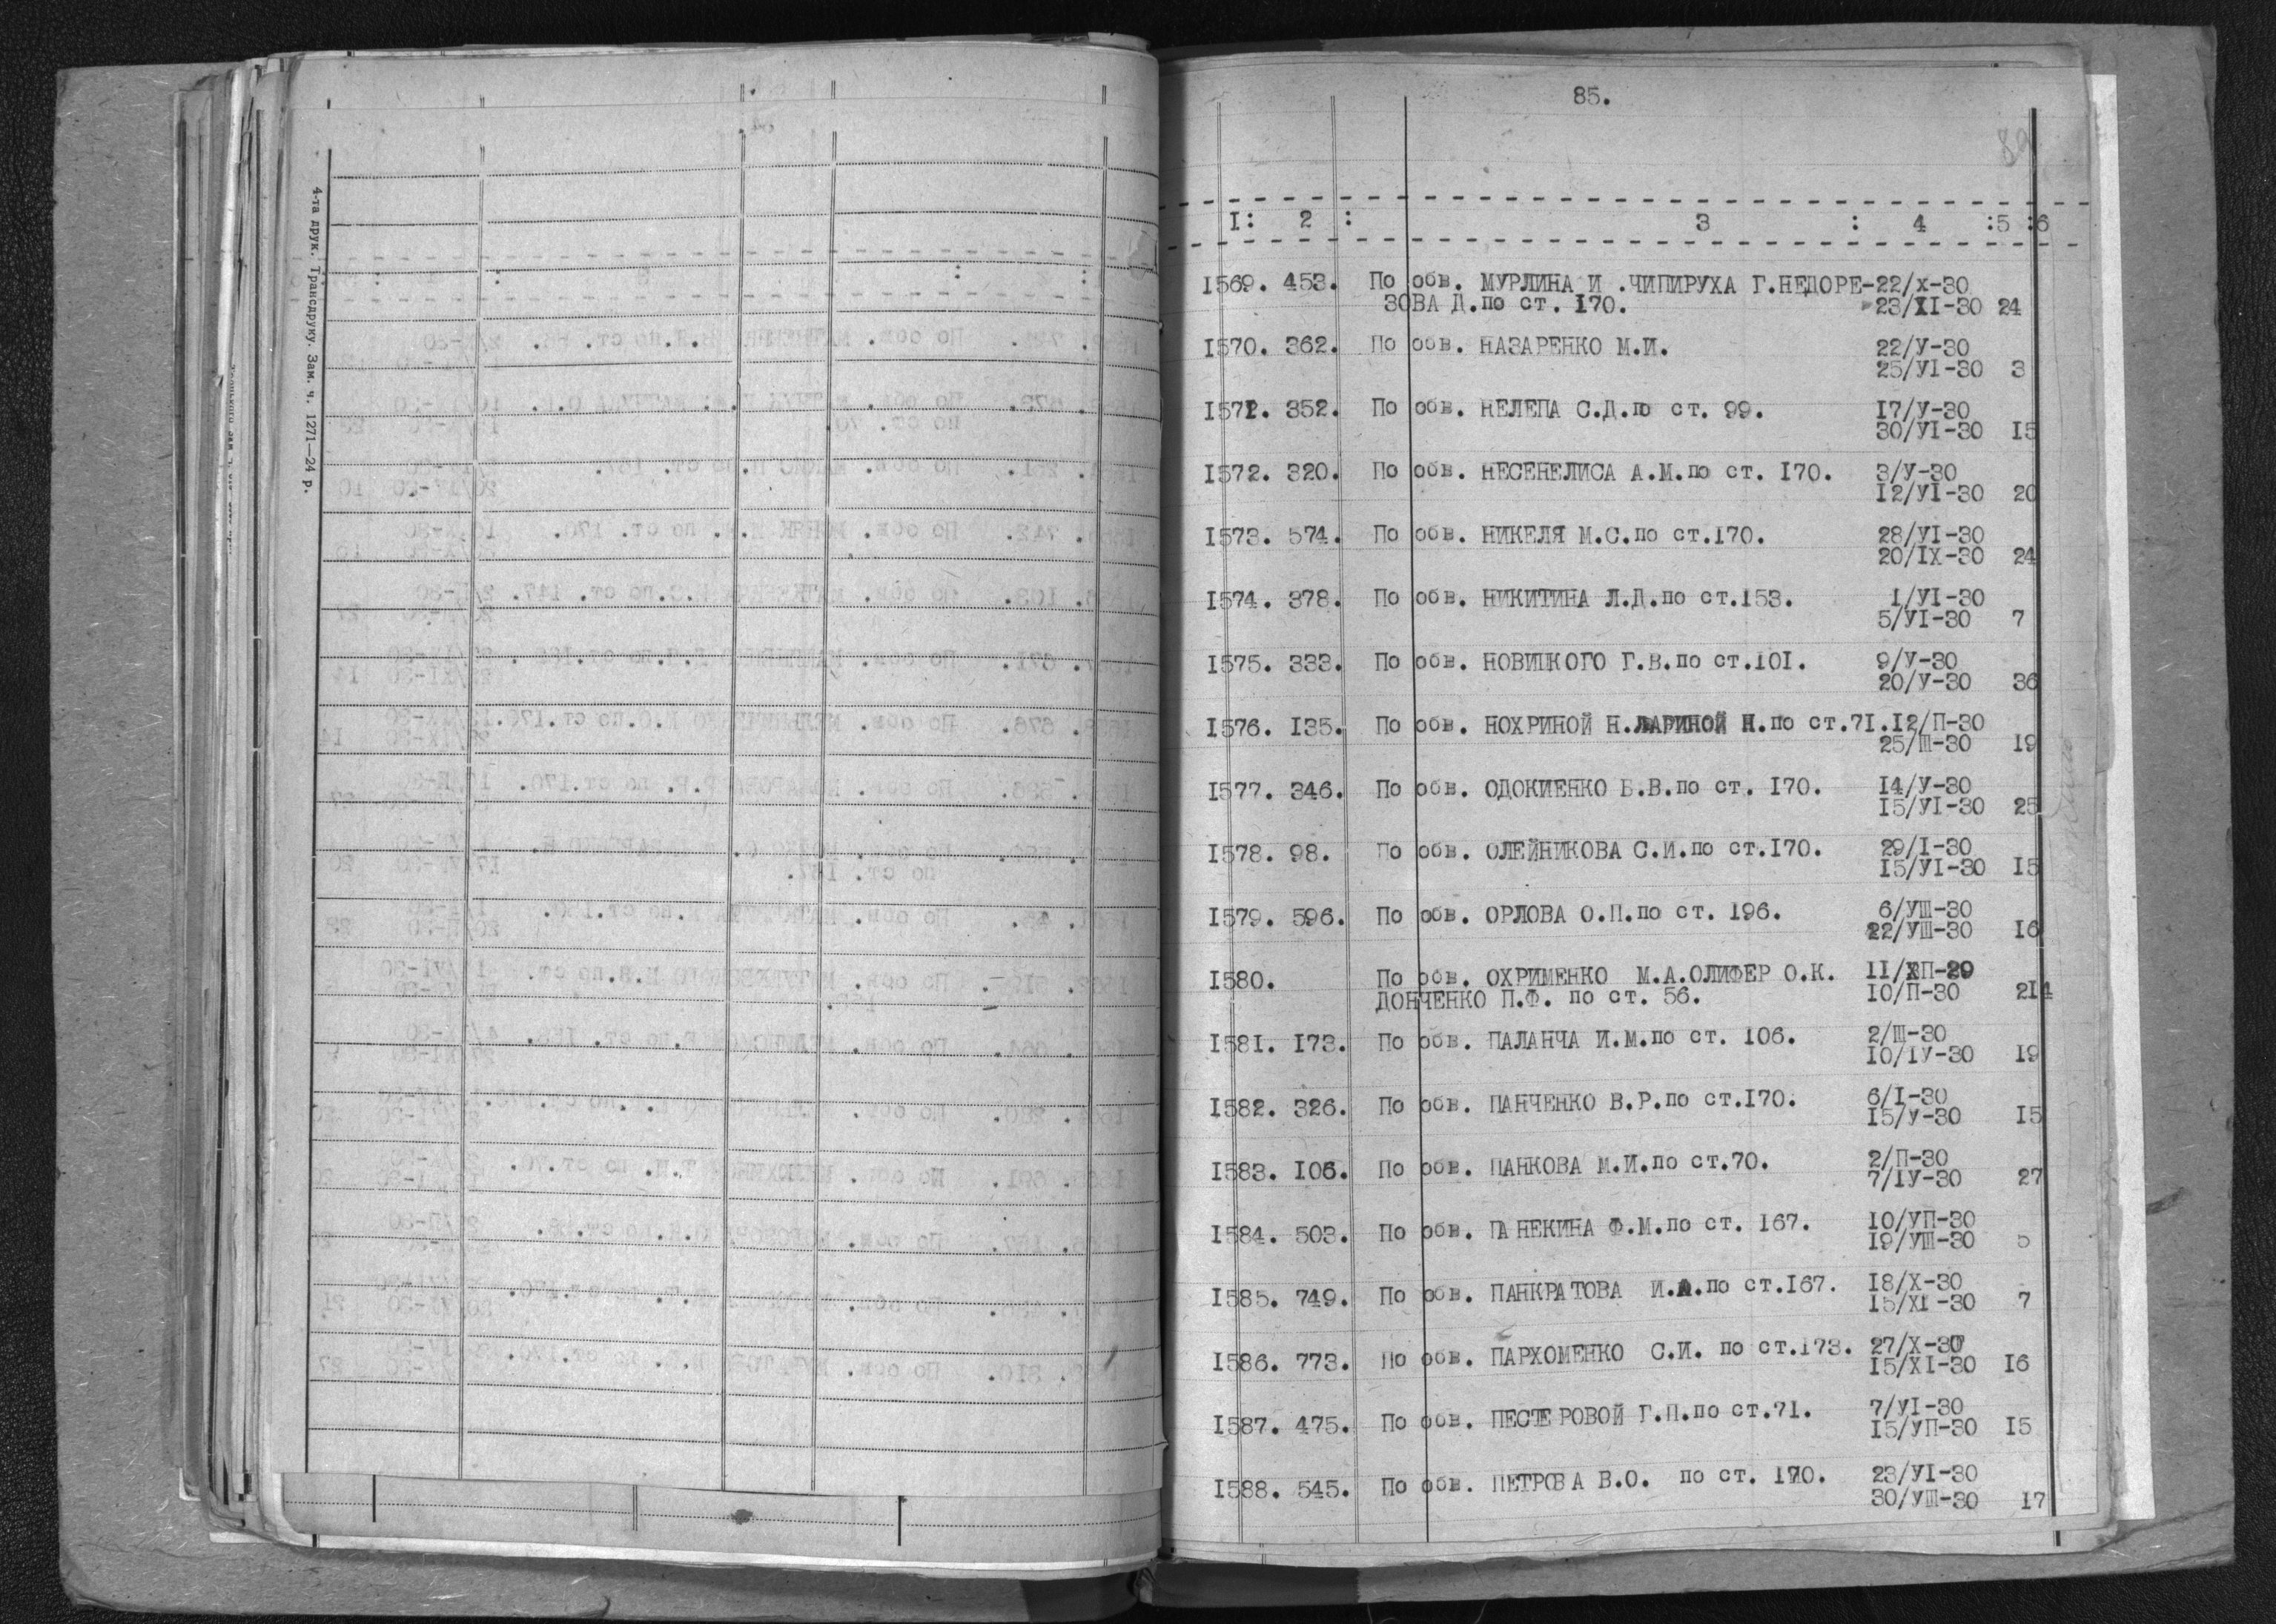 4-та друк. Трансдруку. Зам. ч. 1271—24 р.
85.
89
I: 2 : 3 : 4 :5 :6
I569. 453. По обв. МУРЛИНА И .ЧИПИРУХА Г.НЕДОРЕ-22/X-30
ЗОВА Д.по ст. I70. 23/XI-30 24
I570. 362. По обв. НАЗАРЕНКО М.И. 22/У-30
25/УI-30 3
I571. 352. По обв. НЕЛЕПА С.Д.по ст. 99. I7/У-30
30/УI-30 I5
I572. 320. По обв. НЕСЕНЕЛИСА А.М.по ст. I70. 3/У-30
I2/УI-30 20
I573. 574. По обв. НИКЕЛЯ М.С.по ст.I70. 28/УI-30
20/IX-30 24
I574. 378. По обв. НИКИТИНА Л.Д.по ст.I53. I/УI-30
5/УI-30 7
I575. 333. По обв. НОВИЦКОГО Г.В.по ст.I0I. 9/У-30
20/У-30 36
I576. I35. По обв. НОХРИНОЙ Н.ЛАРИНОЙ Н.по ст.7I.I2/П-30
25/Ш-30 I9
I577. 346. По обв. ОДОКИЕНКО Б.В.по ст. I70. I4/У-30
I5/УI-30 25
I578. 98. По обв. ОЛЕЙНИКОВА С.И.по ст.I70. 29/I-30
I5/УI-30 I5
I579. 596. По обв. ОРЛОВА О.П.по ст. I96. 6/УШ-30
22/УШ-30 I6
I580. По обв. ОХРИМЕНКО М.А.ОЛИФЕР О.К. II/XП-29
ДОНЧЕНКО П.Ф. по ст. 56. I0/П-30 2I4
I58I. I73. По обв. ПАЛАНЧА И.М.по ст. I06. 2/Ш-30
I0/IУ-30 I9
I582. 326. По обв. ПАНЧЕНКО В.Р.по ст.I70. 6/I-30
I5/У-30 I5
I583. I06. По обв. ПАНКОВА М.И.по ст.70. 2/П-30
7/IУ-30 27
I584. 503. По обв. ПАНЕКИНА Ф.М.по ст. I67. I0/УП-30
I9/УШ-30 5
I585. 749. По обв. ПАНКРАТОВА И.А.по ст.I67. I8/X-30
I5/XI-30 7
I586. 773. По обв. ПАРХОМЕНКО С.И. по ст.I73. 27/X-30
I5/XI-30 I6
I587. 475. По обв. ПЕСТЕРОВОЙ Г.П.по ст.7I. 7/УI-30
I5/УП-30 I5
I588. 545. По обв. ПЕТРОВА В.О. по ст. I70. 23/УI-30
30/УШ-30 I7